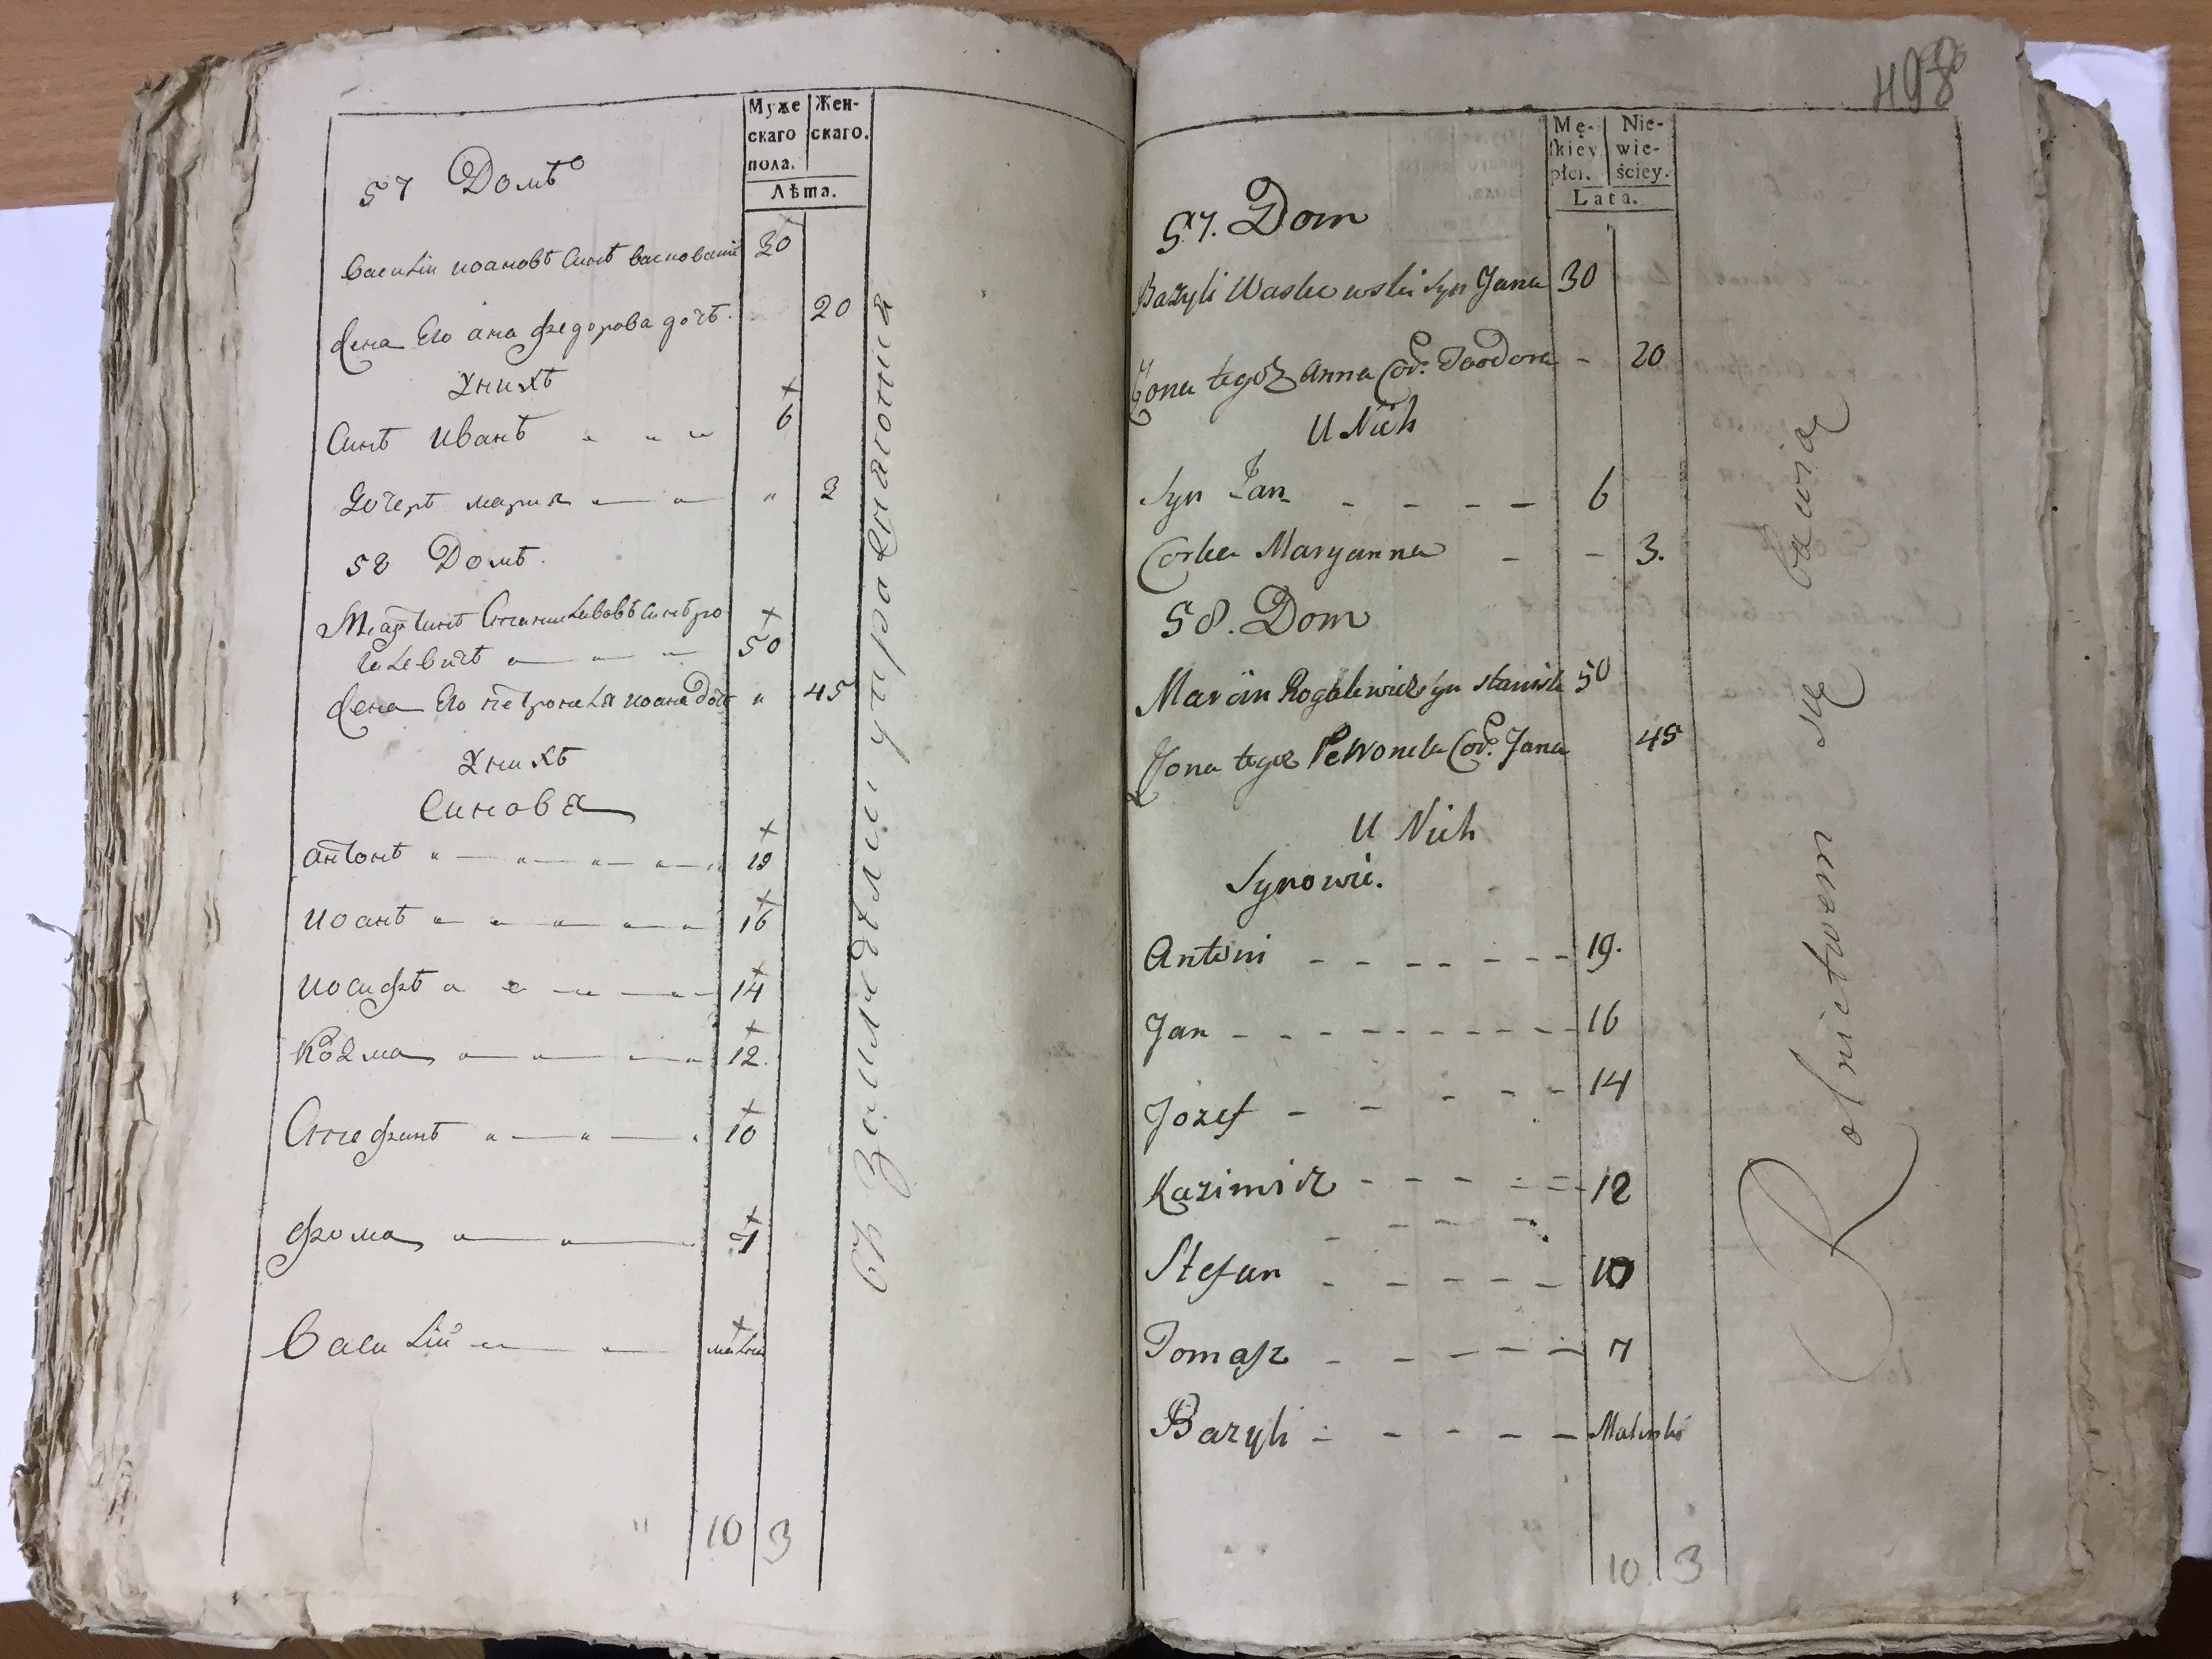 Муже
скаго
пола.
Жен-
скаго.
Лѣта.
57 Домъ
Василiи иоановъ Синъ васковскiй 30
Жена Его ана федорова дочъ. 20
У нихъ
Синъ иванъ " " " 6
Дочерь мария — " — " 3
58 Домъ.
Мартинъ Станиславовъ Синъ ро
галевичъ " — " — " 50
Жена Его петронеля иоана дочъ " 45
У нихъ
Синовя
антонъ " — " — " — " — 19
иоанъ " — " — " — " — 16
иосифъ " " — " — " — 14
Козма " — " — " — 12.
Стефанъ " — " — 10
фома " — " — 7
Василiй " — " — малол
" 10 3
въ Земледѣлiи упражняются
498
Mę-
skiey
płci.
Nie-
wie-
ściey.
Lata.
57. Dom
Bazyli Waskowski syn Jana 30
Żona tegoż Anna Cor. Teodora - 20
U Nich
Syn Jan - - - - - 6
Corka Maryanna - - 3.
58. Dom
Marcin Rogalewicz syn stanisła 50
Żona tegoz Petronela Cor. Jana 45
U Nich
Synowie.
Antoni - - - - - - - 19.
Jan - - - - - - - - - - 16
Jozef - - - - - 14
Kazimirz - - - - - - 12
Stefan - - - - - - 10
Tomasz - - - - - 7
Bazyli - - - - - Maleńki
10. 3
Rolnictwem się bawią